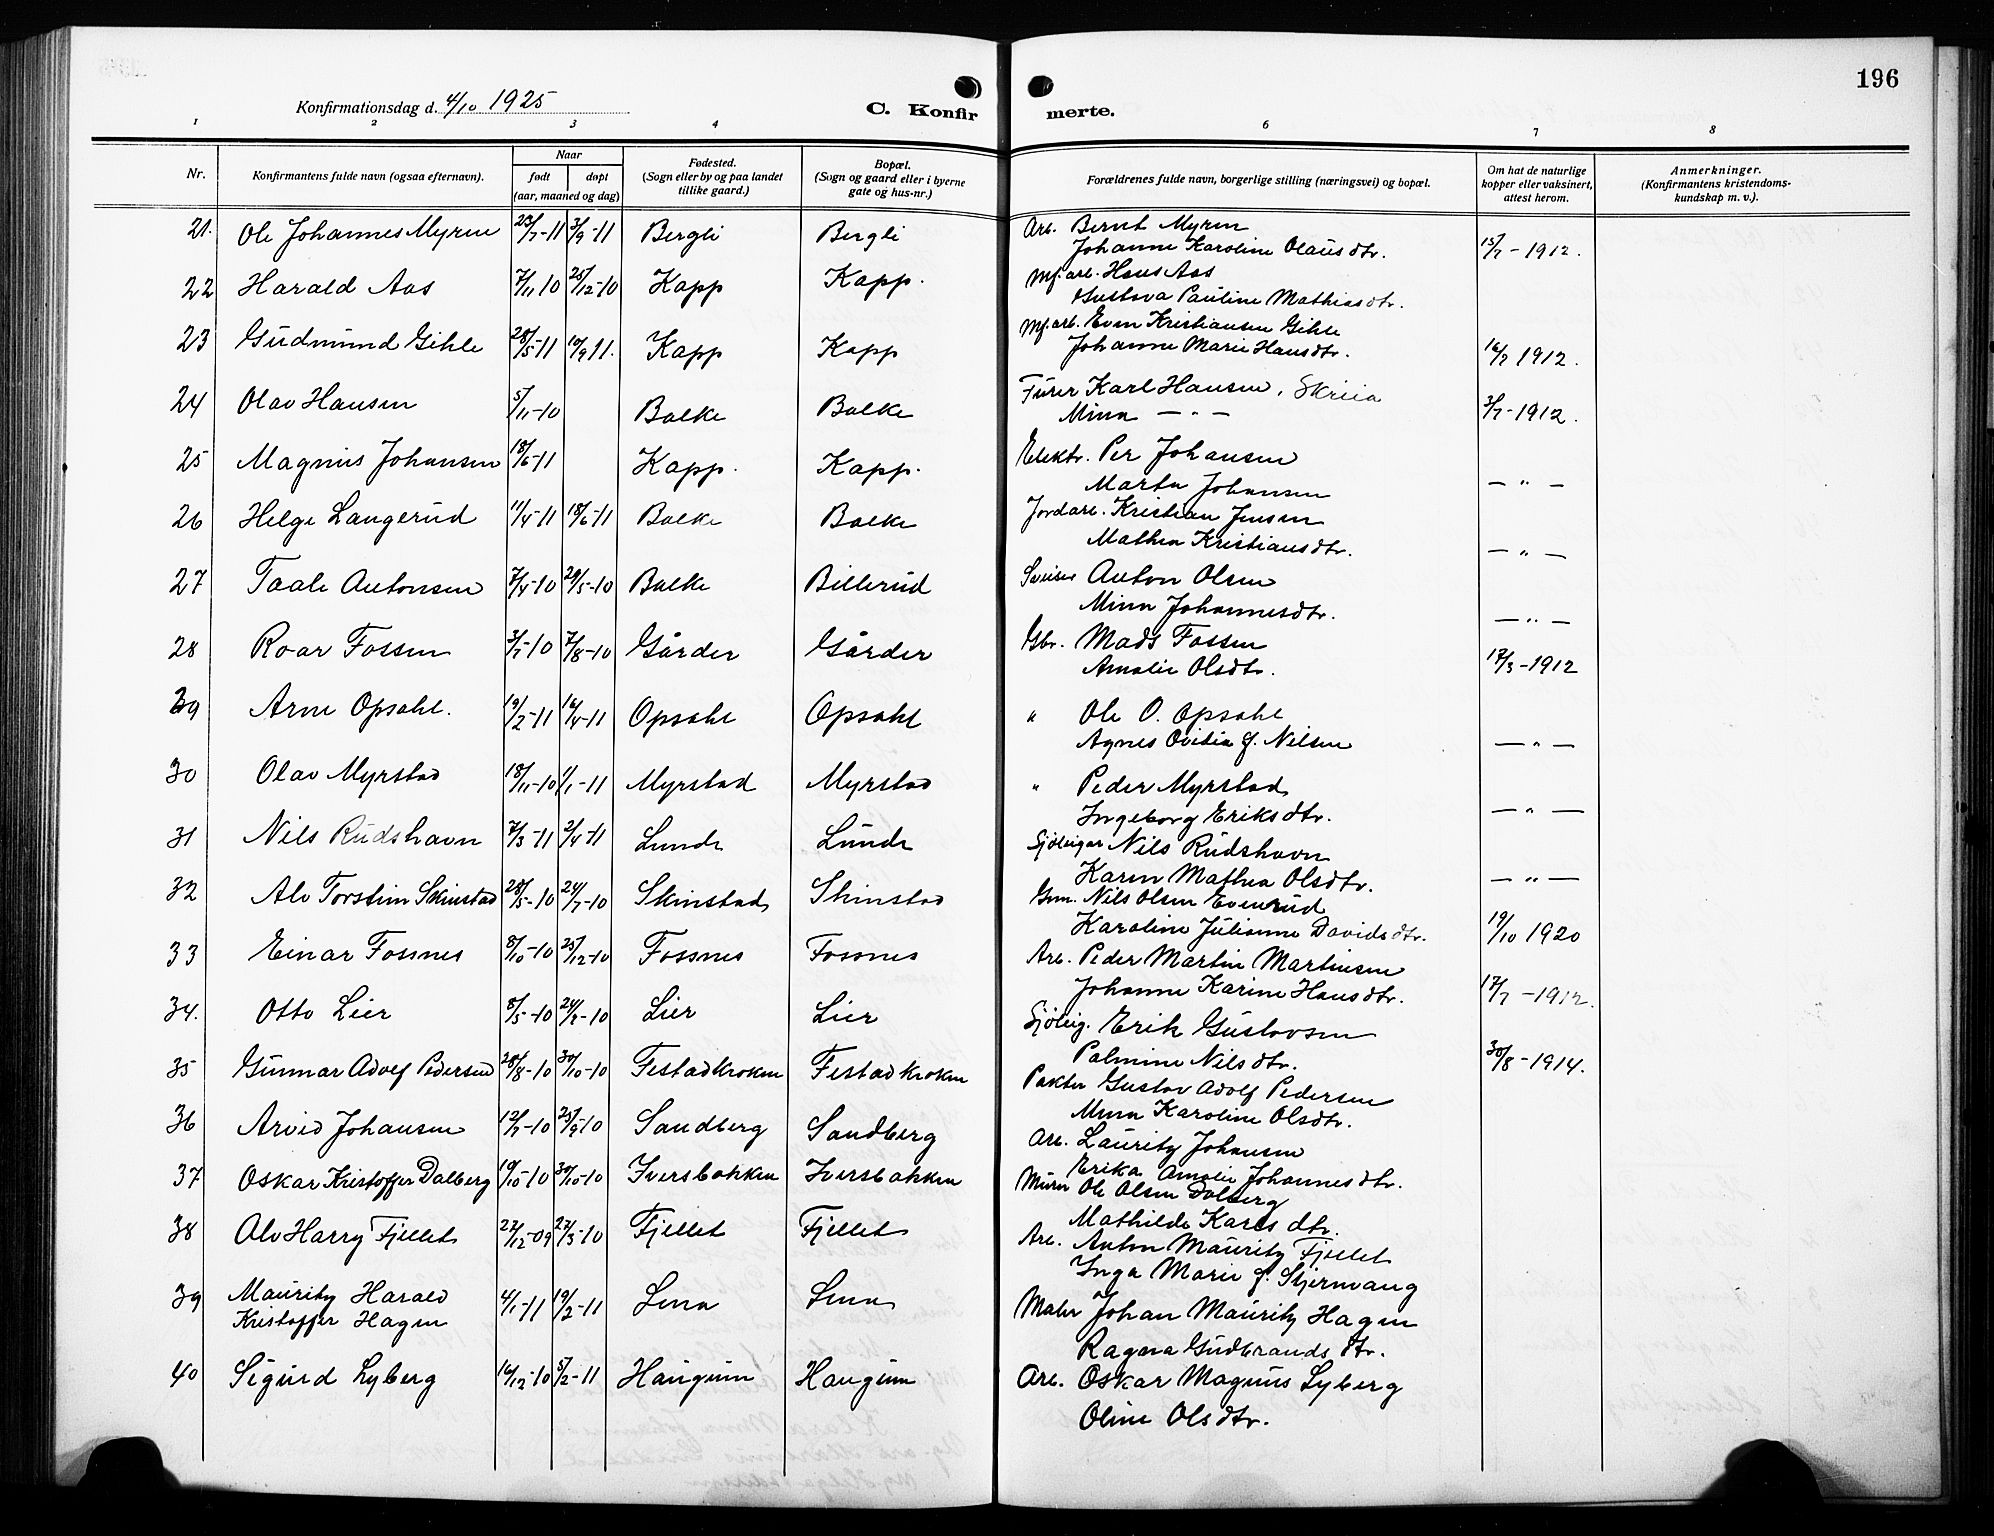 196
Konfirmationsdag d. 4/10 1925
C. Konfirmerte.
1 2 3 4 5 6 7 8
Nr. Konfirmantens fulde navn (ogsaa efternavn). Naar født døpt (aar, maaned og dag) Fødested. (Sogn eller by og paa landet tillike gaard.) Bopæl. (Sogn og gaard eller i byerne gate og hus-nr.) Forældrenes fulde navn, borgerlige stilling (næringsvei) og bopæl. Om hat de naturlige kopper eller vaksinert, attest herom. Anmerkninger. (Konfirmantens kristendomskundskap m. v.).
21. Ole Johannes Myren 23/7-11 3/9-11 Bergli Bergli Arb. Bernt Myren
Johanne Karoline Olausdtr. 15/7-1912.
22 Harald Aas 7/11 10 25/12-10 Kapp Kapp. Mf.arb. Hans Aas
Gustava Pauline Mathiasdtr.
23 Gudmund Gihle 28/5-11 10/9 11. Kapp Kapp Mf.arb. Even Kristiansen Gihle
Johanne Marie Hansdtr. 16/7 1912.
24 Olav Hansen 5/11-10 Balke Balke Furer Karl Hansen, Skreia
Mina — " — 3/7-1912.
25 Magnus Johansen 18/6-11 Kapp. Kapp. Elektr. Per Johansen
Marta Johansen — " —
26 Helge Langerud 11/4-11 18/6-11 Balke Balke Jordarb. Kristian Jensen
Mathea Kristiansdtr. — " —
27 Taale Antonsen 7/4-10 29/5-10 Balke Billerud Sveiser Anton Olsen
Mina Johannesdtr. — " —
28 Roar Fossen 3/7-10 7/8-10 Gårder Gårder Gbr. Mads Fossen
Amalie Olsdtr. 17/3-1912
29 Arne Opsahl. 19/2-11 16/4-11 Opsahl Opsahl " Ole O. Opsahl
Agnes Ovidia f. Nilsen — " —
30 Olav Myrstad 18/11-10 1/1-11 Myrstad Myrstad " Peder Myrstad
Ingeborg Eriksdtr. — " —
31 Nils Rudshavn 7/3-11 2/4-11 Lunde Lunde Sjöleiger Nils Rudshavn
Karen Mathea Olsdtr. — " —
32 Alv Torstein Skinstad 28/5-10 24/7-10 Skinstad Skinstad Grm. Nils Olsen Evenrud
Karoline Julianne Davidsdtr. 19/10 1920
33 Einar Fossnes 8/10-10 25/12-10 Fossnes Fossnes Arb. Peder Martin Martinsen
Johanne Karine Hansdtr. 17/7-1912.
34. Otto Lier 8/5-10 24/7-10 Lier Lier Sjöleig. Erik Gustavsen
Palmine Nilsdtr. 30/8-1914.
35 Gunnar Adolf Pedersen 28/8-10 30/10-10 Festadkroken Festadkroken Pakter Gustav Adolf Pedersen
Mina Karoline Olsdtr.
36 Arvid Johansen 12/7-10 25/9-10 Sandberg Sandberg Arb. Lauritz Johansen
Erika Amalie Johannesdtr.
37 Oskar Kristoffer Dalberg 10/10-10 30/10-10 Iversbakken Iversbakken Murer Ole Olsen Dalberg
Mathilde Karlsdtr.
38 Alv Harry Fjellet 22/12-09 27/3-10 Fjellet Fjellet Arb. Anton Mauritz Fjellet
Inga Marie f. Stjernvang
39 Mauritz Harald
Kristoffer Hagen 4/1-11 19/2-11 Lena Lena Maler Johan Mauritz Hagen
Ragna Gudbrandsdtr.
40 Sigurd Lyberg 16/12-10 5/2-11 Haugum Haugum Arb. Oskar Magnus Lyberg
Oline Olsdtr.